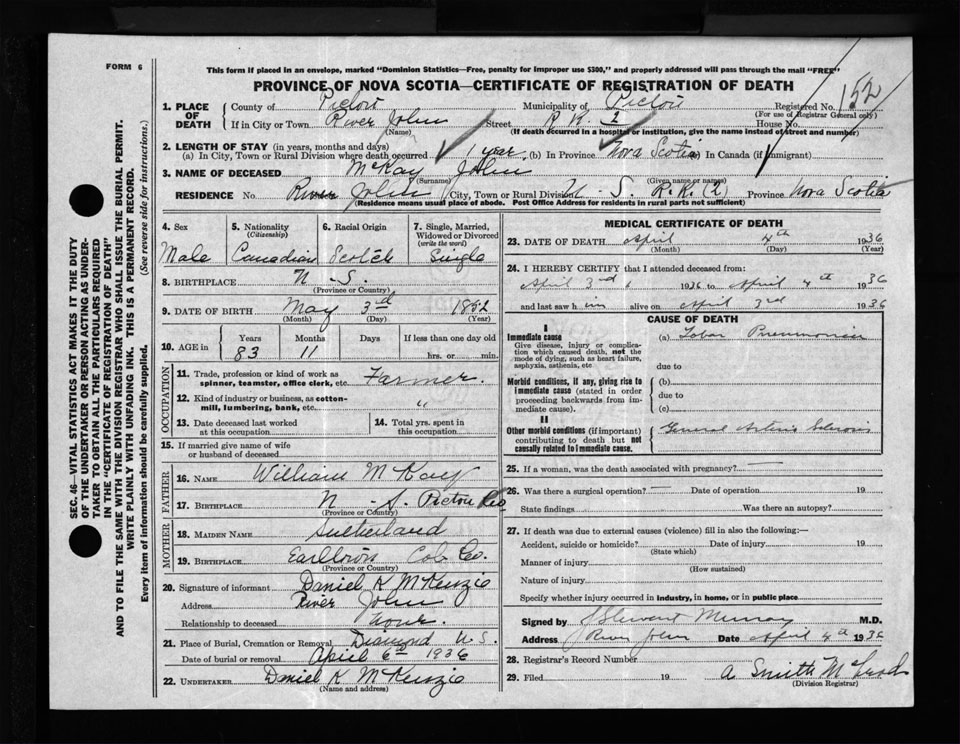 FORM 6
This form if placed in an envelope, marked "Dominion Statistics—Free, penalty for improper use $300," and properly addressed will pass through the mail "FREE"
PROVINCE OF NOVA SCOTIA—CERTIFICATE OF REGISTRATION OF DEATH
1. PLACE OF DEATH
County of Pictou Municipality of Pictou Registered No. 152
(For use of Registrar General only)
If in City or Town River John Street R.R. 2 House No.
(Name) (If death occurred in a hospital or institution, give the name instead of street and number)
2. LENGTH OF STAY (in years, months and days)
(a) In City, Town or Rural Division where death occurred 1 year (b) In Province Nova Scotia (c) In Canada (if immigrant)
3. NAME OF DECEASED McKay John
(Surname) (Given name or names)
RESIDENCE No. River John (City, Town or Rural Division) N-S. R.R.(2) Province Nova Scotia
(Residence means usual place of abode. Post Office Address for residents in rural parts not sufficient)
4. Sex
Male
5. Nationality
(Citizenship)
Canadian
6. Racial Origin
Scotch
7. Single, Married, Widowed or Divorced
(write the word)
Single
8. BIRTHPLACE N-S.
(Province or Country)
9. DATE OF BIRTH May 3rd 1852
(Month) (Day) (Year)
10. AGE in
Years
83
Months
11
Days
If less than one day old
hrs. or min.
OCCUPATION
11. Trade, profession or kind of work as spinner, teamster, office clerk, etc. Farmer.
12. Kind of industry or business, as cotton-mill, lumbering, bank, etc. "
13. Date deceased last worked at this occupation
14. Total yrs. spent in this occupation
15. If married give name of wife or husband of deceased
FATHER
16. NAME William McKay
17. BIRTHPLACE N-S. Pictou Co
(Province or Country)
MOTHER
18. MAIDEN NAME Sutherland
19. BIRTHPLACE Earltown Col. Co.
(Province or Country)
20. Signature of informant Daniel K McKenzie
Address River John
Relationship to deceased None.
21. Place of Burial, Cremation or Removal Diamond N.S.
Date of burial or removal April 6th 1936
22. UNDERTAKER Daniel K McKenzie
(Name and address)
MEDICAL CERTIFICATE OF DEATH
23. DATE OF DEATH April 4th 1936
(Month) (Day) (Year)
24. I HEREBY CERTIFY that I attended deceased from:
April 3rd 1936 to April 4th 1936
and last saw him alive on April 3rd 1936
CAUSE OF DEATH
I
Immediate cause
Give disease, injury or complication which caused death, not the mode of dying, such as heart failure, asphyxia, asthenia, etc
(a) Lobar Pneumonia
due to
Morbid conditions, if any, giving rise to immediate cause (stated in order proceeding backwards from immediate cause).
(b)
due to
(c)
II
Other morbid conditions (if important) contributing to death but not causally related to immediate cause.
General Arterio Sclerosis
25. If a woman, was the death associated with pregnancy?
26. Was there a surgical operation? Date of operation 19
State findings Was there an autopsy?
27. If death was due to external causes (violence) fill in also the following:—
Accident, suicide or homicide? Date of injury 19
(State which)
Manner of injury
(How sustained)
Nature of injury
Specify whether injury occurred in industry, in home, or in public place
Signed by J Stewart Murray M.D.
Address River John Date April 4th 1936
28. Registrar's Record Number
29. Filed 19
(Division Registrar)
SEC. 46—VITAL STATISTICS ACT MAKES IT THE DUTY OF THE UNDERTAKER OR PERSON ACTING AS UNDERTAKER TO OBTAIN ALL THE PARTICULARS REQUIRED IN THE "CERTIFICATE OF REGISTRATION OF DEATH"
AND TO FILE THE SAME WITH THE DIVISION REGISTRAR WHO SHALL ISSUE THE BURIAL PERMIT.
WRITE PLAINLY WITH UNFADING INK. THIS IS A PERMANENT RECORD.
Every item of information should be carefully supplied. (See reverse side for instructions.)